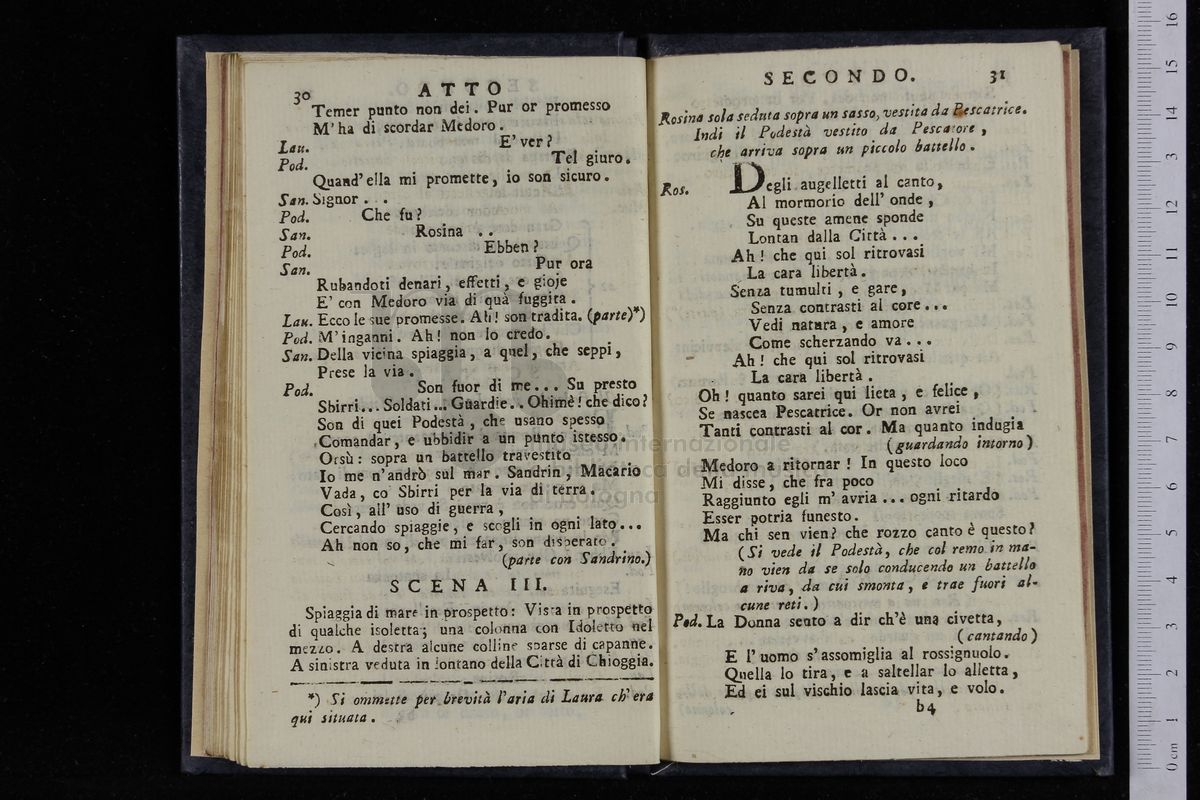 30 ATTO
Temer punto non dei. Pur or promesso
M'ha di scordar Medoro.
Lau. E' ver?
Pod. Tel giuro.
Quand'ella mi promette, io son sicuro.
San. Signor...
Pod. Che fu?
San. Rosina ..
Pod. Ebben?
San. Pur ora
Rubandoti denari, effetti, e gioje
E' con Medoro via di quà fuggita.
Lau. Ecco le sue promesse. Ah! son tradita. (parte)*)
Pod. M'inganni. Ah! non lo credo.
San. Della vicina spiaggia, a quel, che seppi,
Prese la via.
Pod. Son fuor di me... Su presto
Sbirri... Soldati... Guardie.. Ohimè! che dico?
Son di quei Podestà, che usano spesso
Comandar, e ubbidir a un punto istesso.
Orsù: sopra un battello travestito
Io me n'andrò sul mar. Sandrin, Macario
Vada, co' Sbirri per la via di terra.
Così, all'uso di guerra,
Cercando spiaggie, e scogli in ogni lato...
Ah non so, che mi far, son disperato.
(parte con Sandrino.)
SCENA III.
Spiaggia di mare in prospetto: Vista in prospetto
di qualche isoletta; una colonna con Idoletto nel
mezzo. A destra alcune colline sparse di capanne.
A sinistra veduta in lontano della Città di Chioggia.
*) Si ommette per brevità l'aria di Laura ch'era
qui situata.
SECONDO. 31
Rosina sola seduta sopra un sasso, vestita da Pescatrice.
Indi il Podestà vestito da Pescatore,
che arriva sopra un piccolo battello.
Ros. Degli augelletti al canto,
Al mormorio dell'onde,
Su queste amene sponde
Lontan dalla Città...
Ah! che qui sol ritrovasi
La cara libertà.
Senza tumulti, e gare,
Senza contrasti al core...
Vedi natura, e amore
Come scherzando va...
Ah! che qui sol ritrovasi
La cara libertà.
Oh! quanto sarei qui lieta, e felice,
Se nascea Pescatrice. Or non avrei
Tanti contrasti al cor. Ma quanto indugia
(guardando intorno)
Medoro a ritornar! In questo loco
Mi disse, che fra poco
Raggiunto egli m'avria... ogni ritardo
Esser potria funesto.
Ma chi sen vien? che rozzo canto è questo?
(Si vede il Podestà, che col remo in ma-
no vien da se solo conducendo un battello
a riva, da cui smonta, e trae fuori al-
cune reti.)
Pod. La Donna sento a dir ch'è una civetta,
(cantando)
E l'uomo s'assomiglia al rossignuolo.
Quella lo tira, e a saltellar lo alletta,
Ed ei sul vischio lascia vita, e volo.
b4